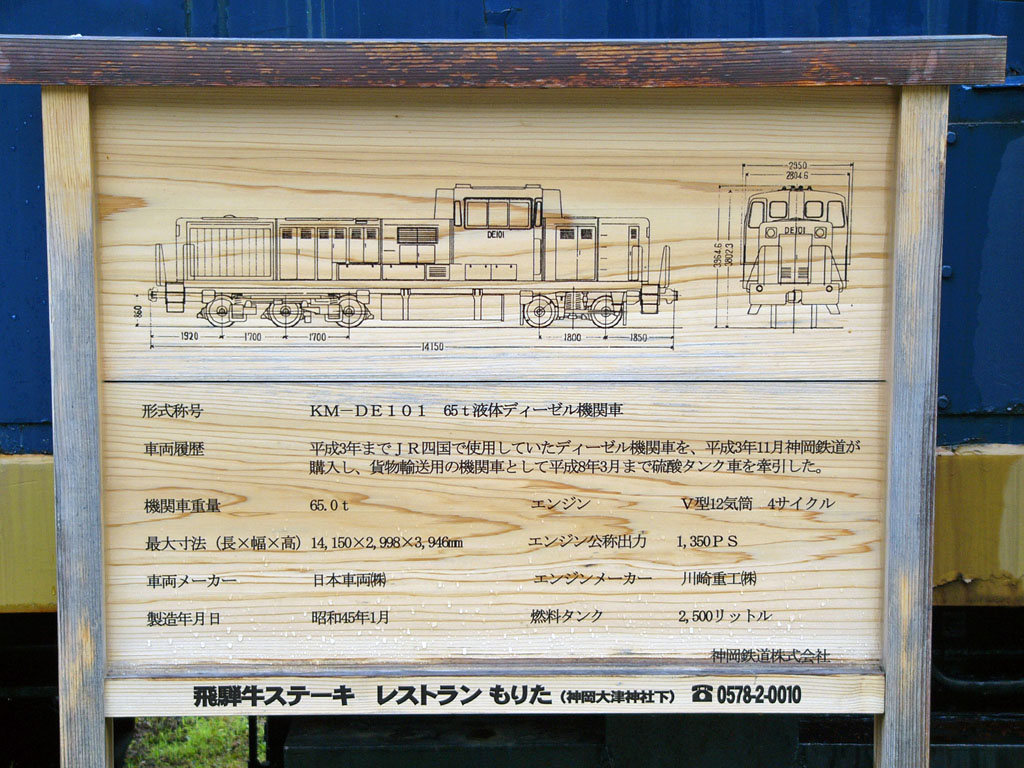 2950
2804.6
3964.6
3802.3
DE101
DE101
860
1920
1700
1700
1800
1850
14150
形式称号 KM－DE101 65t液体ディーゼル機関車
車両履歴 平成3年までJR四国で使用していたディーゼル機関車を、平成3年11月神岡鉄道が
購入し、貨物輸送用の機関車として平成8年3月まで硫酸タンク車を牽引した。
機関車重量 65.0t エンジン V型12気筒 4サイクル
最大寸法（長×幅×高）14,150×2,998×3,946㎜ エンジン公称出力 1,350PS
車両メーカー 日本車両㈱ エンジンメーカー 川崎重工㈱
製造年月日 昭和45年1月 燃料タンク 2,500リットル
神岡鉄道株式会社
飛騨牛ステーキ レストラン もりた（神岡大津神社下） ☎0578-2-0010